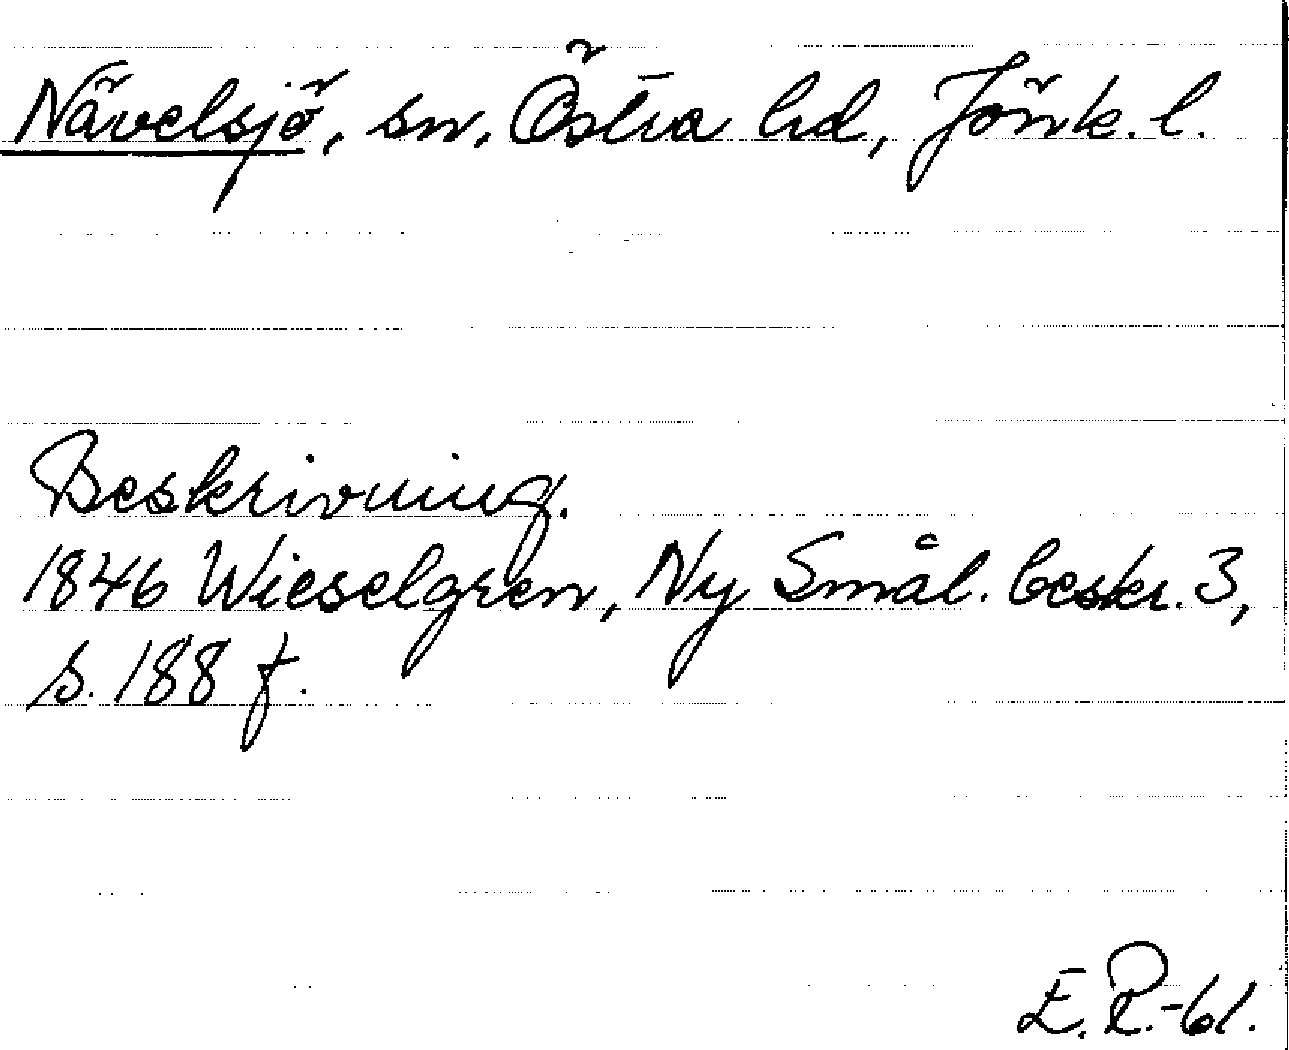 Nävelsjö, sn, Östra hd, Jönk. l.
Beskrivning.
1846 Wieselgren, Ny Smål. beskr. 3,
s. 188 f.
E. R.-61.